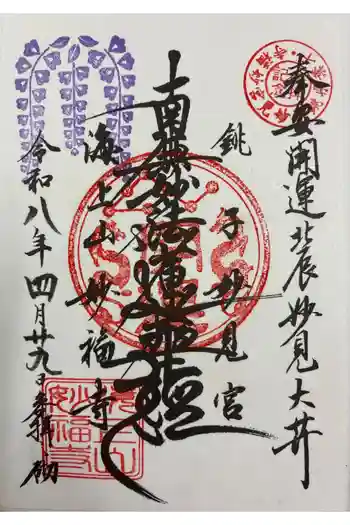 奉安開運北辰妙見大井
銚子妙見宮
南無妙法蓮華経
海上山妙福寺
令和八年四月廿九日奉拝
妙福寺